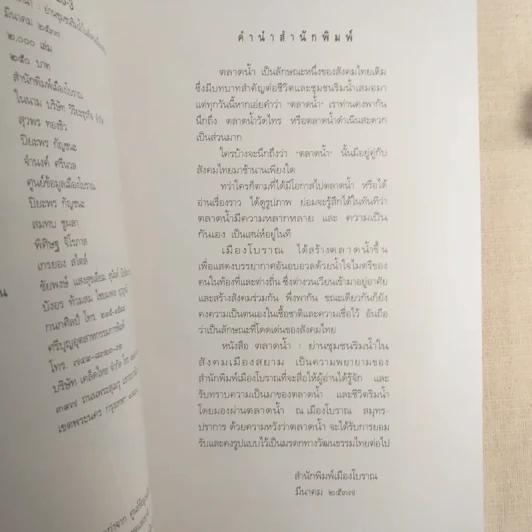 : ย่านชุมชนริมน้ำในสังคมเมืองสยาม
มีนาคม ๒๕๓๗
๒,๐๐๐ เล่ม
๒๕๐ บาท
สำนักพิมพ์เมืองโบราณ
ในนาม บริษัท วิริยะธุรกิจ จำกัด
สุวพร ทองธิว
ปิยะพร กัญชนะ
จำนงค์ ศรีนวล
ศูนย์ข้อมูลเมืองโบราณ
ปิยะพร กัญชนะ
สมทบ ชูผลา
พิศิษฐ จิโรภาส
เกรยอง สไตล์
ชัยพงษ์
ศรีบุญอุตสาหกรรมการพิมพ์
บริษัท เคล็ดไทย จำกัด
คำนำสำนักพิมพ์
ตลาดน้ำ เป็นลักษณะหนึ่งของสังคมไทยเดิม
ซึ่งมีบทบาทสำคัญต่อชีวิตและชุมชนริมน้ำเสมอมา
แต่ทุกวันนี้หากเอ่ยคำว่า "ตลาดน้ำ" เราท่านคงพากัน
นึกถึง ตลาดน้ำวัดไทร หรือตลาดน้ำดำเนินสะดวก
เป็นส่วนมาก
ใครบ้างจะนึกถึงว่า "ตลาดน้ำ" นั้นมีอยู่คู่กับ
สังคมไทยมาช้านานเพียงใด
ทว่าใครก็ตามที่ได้มีโอกาสไปตลาดน้ำ หรือได้
อ่านเรื่องราว ได้ดูรูปภาพ ย่อมจะรู้สึกได้ในทันทีว่า
ตลาดน้ำมีความหลากหลาย และ ความเป็น
กันเอง เป็นเสน่ห์อยู่ในที
เมืองโบราณ ได้สร้างตลาดน้ำขึ้น
เพื่อแสดงบรรยากาศอันอบอวลด้วยน้ำใจไมตรีของ
คนในท้องที่และต่างถิ่น ซึ่งต่างวนเวียนเข้ามาอยู่อาศัย
และสร้างสังคมร่วมกัน พึ่งพากัน ขณะเดียวกันก็ยัง
คงความเป็นตนเองในเชื้อชาติและความเชื่อไว้ อันถือ
ว่าเป็นลักษณะที่โดดเด่นของสังคมไทย
หนังสือ ตลาดน้ำ : ย่านชุมชนริมน้ำใน
สังคมเมืองสยาม เป็นความพยายามของ
สำนักพิมพ์เมืองโบราณที่จะสื่อให้ผู้อ่านได้รู้จัก และ
รับทราบความเป็นมาของตลาดน้ำ และชีวิตริมน้ำ
โดยมองผ่านตลาดน้ำ ณ เมืองโบราณ สมุทร-
ปราการ ด้วยความหวังว่าตลาดน้ำ จะได้รับการยอม
รับและคงรูปแบบไว้เป็นมรดกทางวัฒนธรรมไทยต่อไป
สำนักพิมพ์เมืองโบราณ
มีนาคม ๒๕๓๗